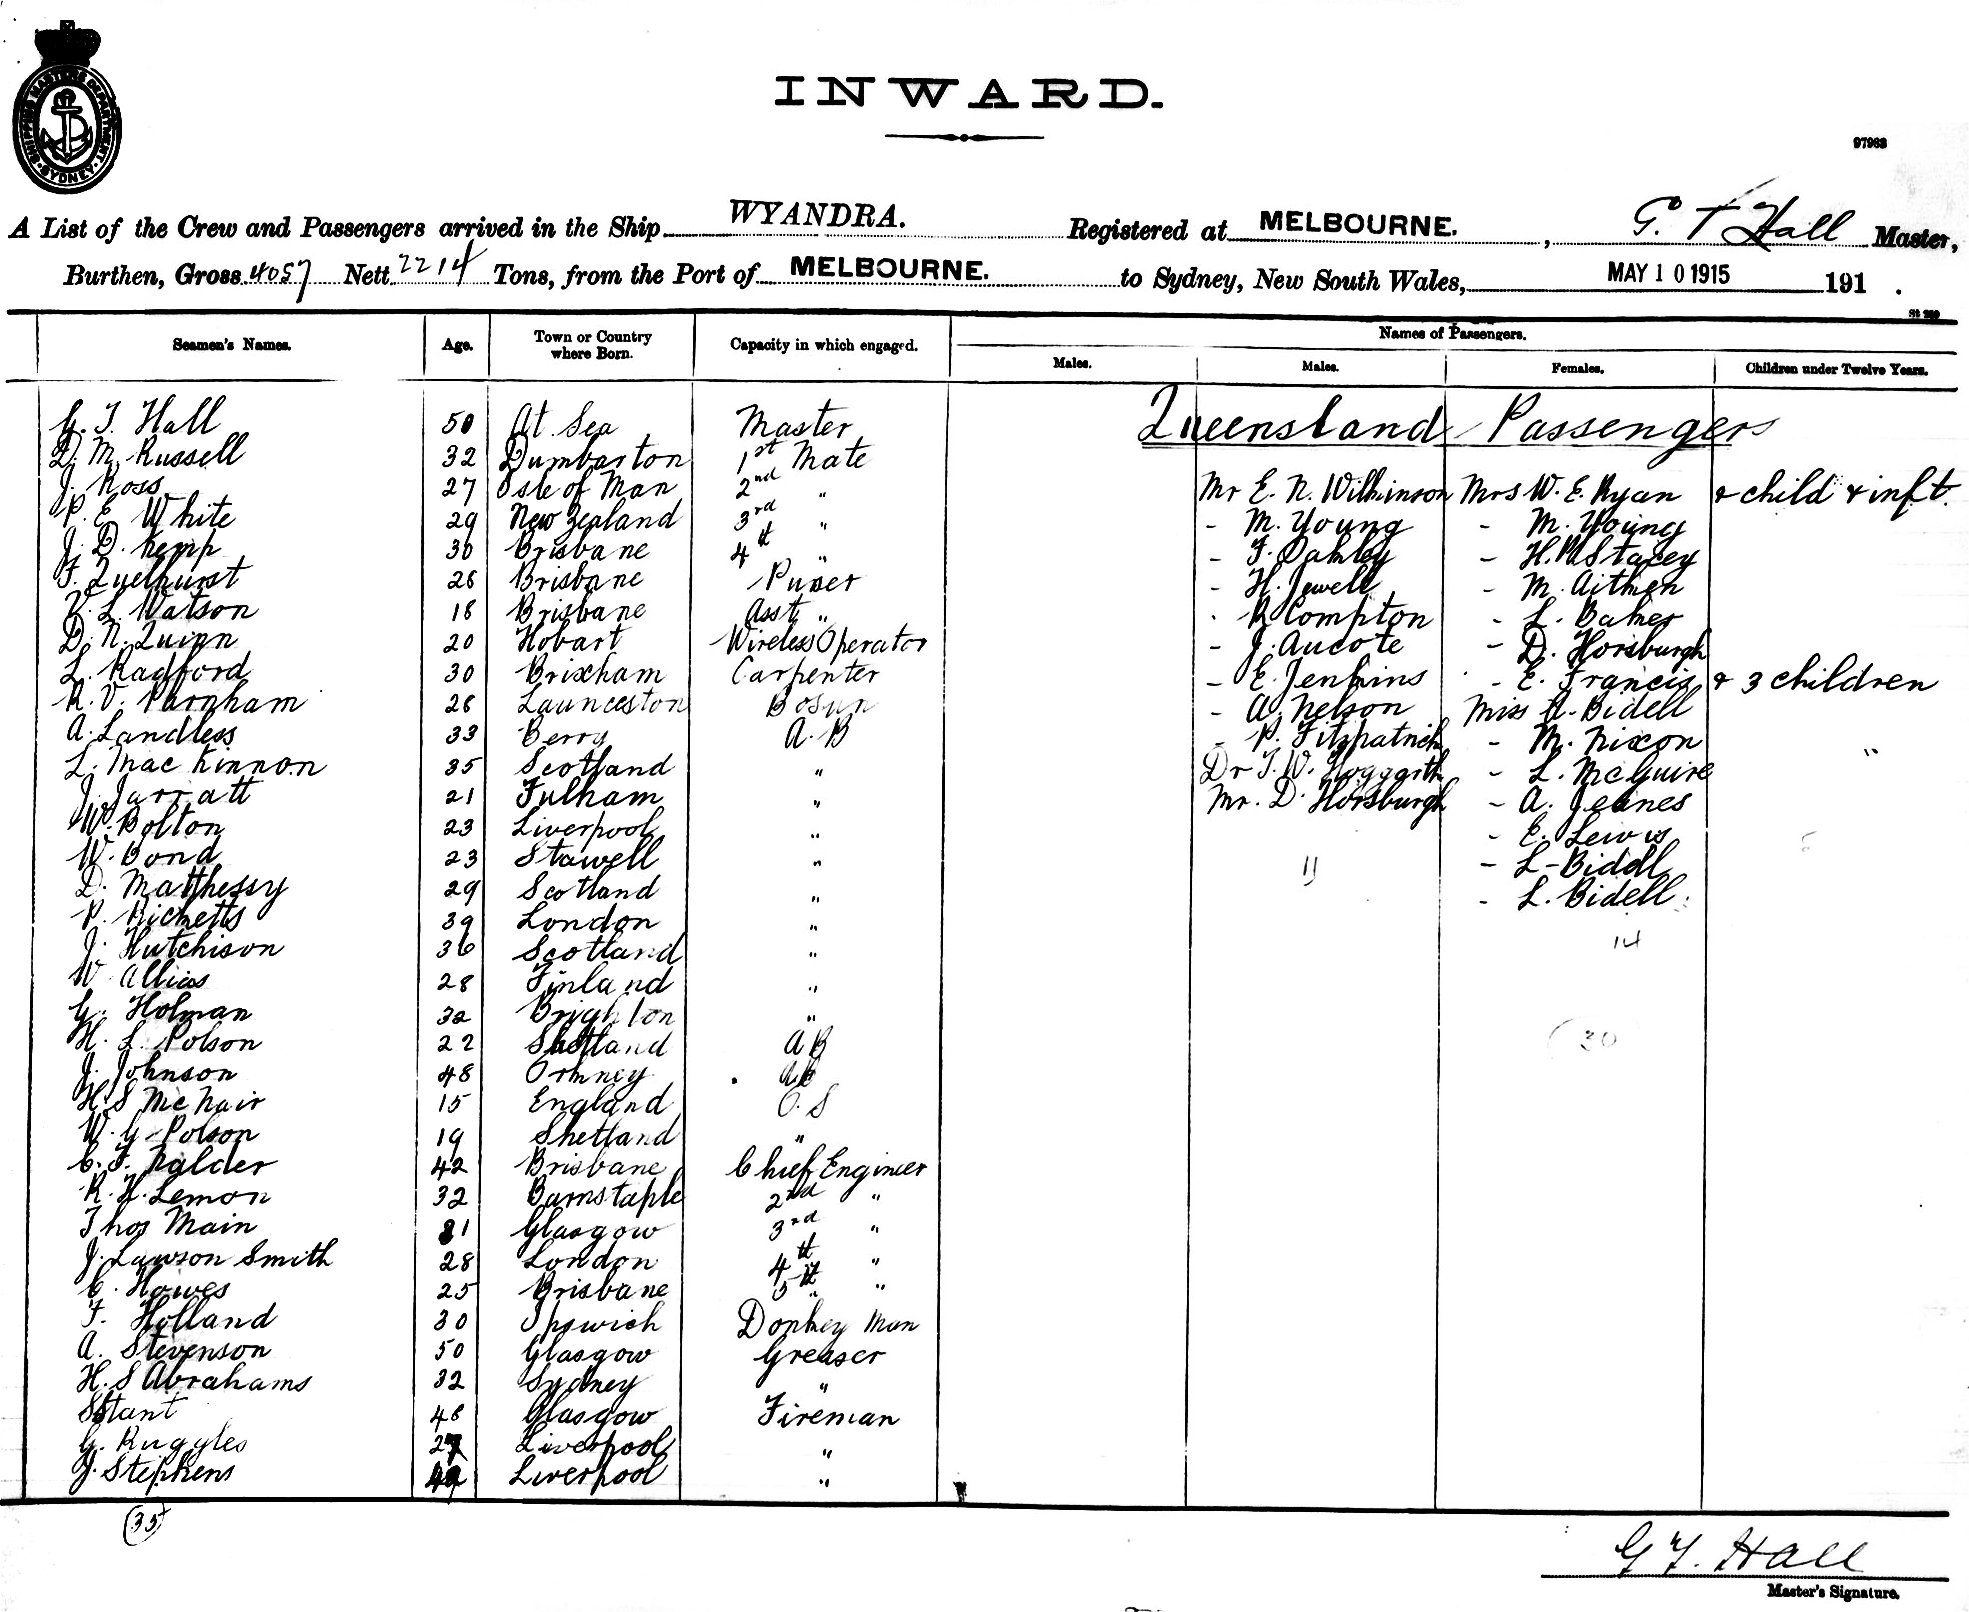 SHIPPING MASTERS DEPARTMENT. SYDNEY.
INWARD.
97963
A List of the Crew and Passengers arrived in the Ship WYANDRA. Registered at MELBOURNE., G. T Hall Master,
Burthen, Gross 4057 Nett 2214 Tons, from the Port of MELBOURNE. to Sydney, New South Wales, MAY 10 1915 191 .
Seamen's Names. Age. Town or Country where Born. Capacity in which engaged. Names of Passengers.
Males. Males. Females. Children under Twelve Years.
Queensland Passengers
G. T. Hall 50 At Sea Master
D. M. Russell 32 Dumbarton 1st Mate
J. Ross 27 Isle of Man 2nd "
P. E. White 29 New Zealand 3rd "
J. D. Kemp 30 Brisbane 4th "
F. 26 Brisbane Purser
V. L. Watson 18 Brisbane Asst "
D. N. Quinn 20 Hobart Wireless Operator
L. Radford 30 Brixham Carpenter
R. V. Parnham 26 Launceston Bosun
A. Landless 33 Berry A.B
L. MacKinnon 35 Scotland "
J. Jarratt 21 Fulham "
W. Bolton 23 Liverpool "
W. Bond 23 Stawell "
D. Matthessy 29 Scotland "
P. Ricketts 39 London "
J. Hutchison 36 Scotland "
W 28 Finland "
G. Holman 32 Brighton "
H. L. Polson 22 Shetland AB
J. Johnson 48 Orkney AB
H. S McNair 15 England O.S
W. G. Polson 19 Shetland "
C. F. Nalder 42 Brisbane Chief Engineer
R. H. Lemon 32 Barnstaple 2nd "
Thos Main 31 Glasgow 3rd "
J. Lawson Smith 28 London 4th "
C. Howes 25 Brisbane 5th "
F. Holland 30 Ipswich Donkey Man
A. Stevenson 50 Glasgow Greaser
H. S Abrahams 32 Sydney "
S Stant 48 Glasgow Fireman
G. Ruggles 27 Liverpool "
J. Stephens 49 Liverpool "
35
Mr E. N. Wilkinson Mrs W. E. Ryan & child & inft.
- M. Young - M. Young
- F. Oakley - H. M Stacey
- H. Jewell - M. Aitken
- R Compton - L. Baker
- J. Aucote - D. Horsburgh
- E. Jenkins - E. Francis & 3 children
- A. Nelson Miss A. Bidell
- P. Fitzpatrick - M. Nixon
Dr T. W. Hoggarth - L. McGuire
Mr. D. Horsburgh - A. Jeanes
- E. Lewis
11 - L-Biddl
- L. Bidell.
14
30
G T. Hall
Master's Signature.